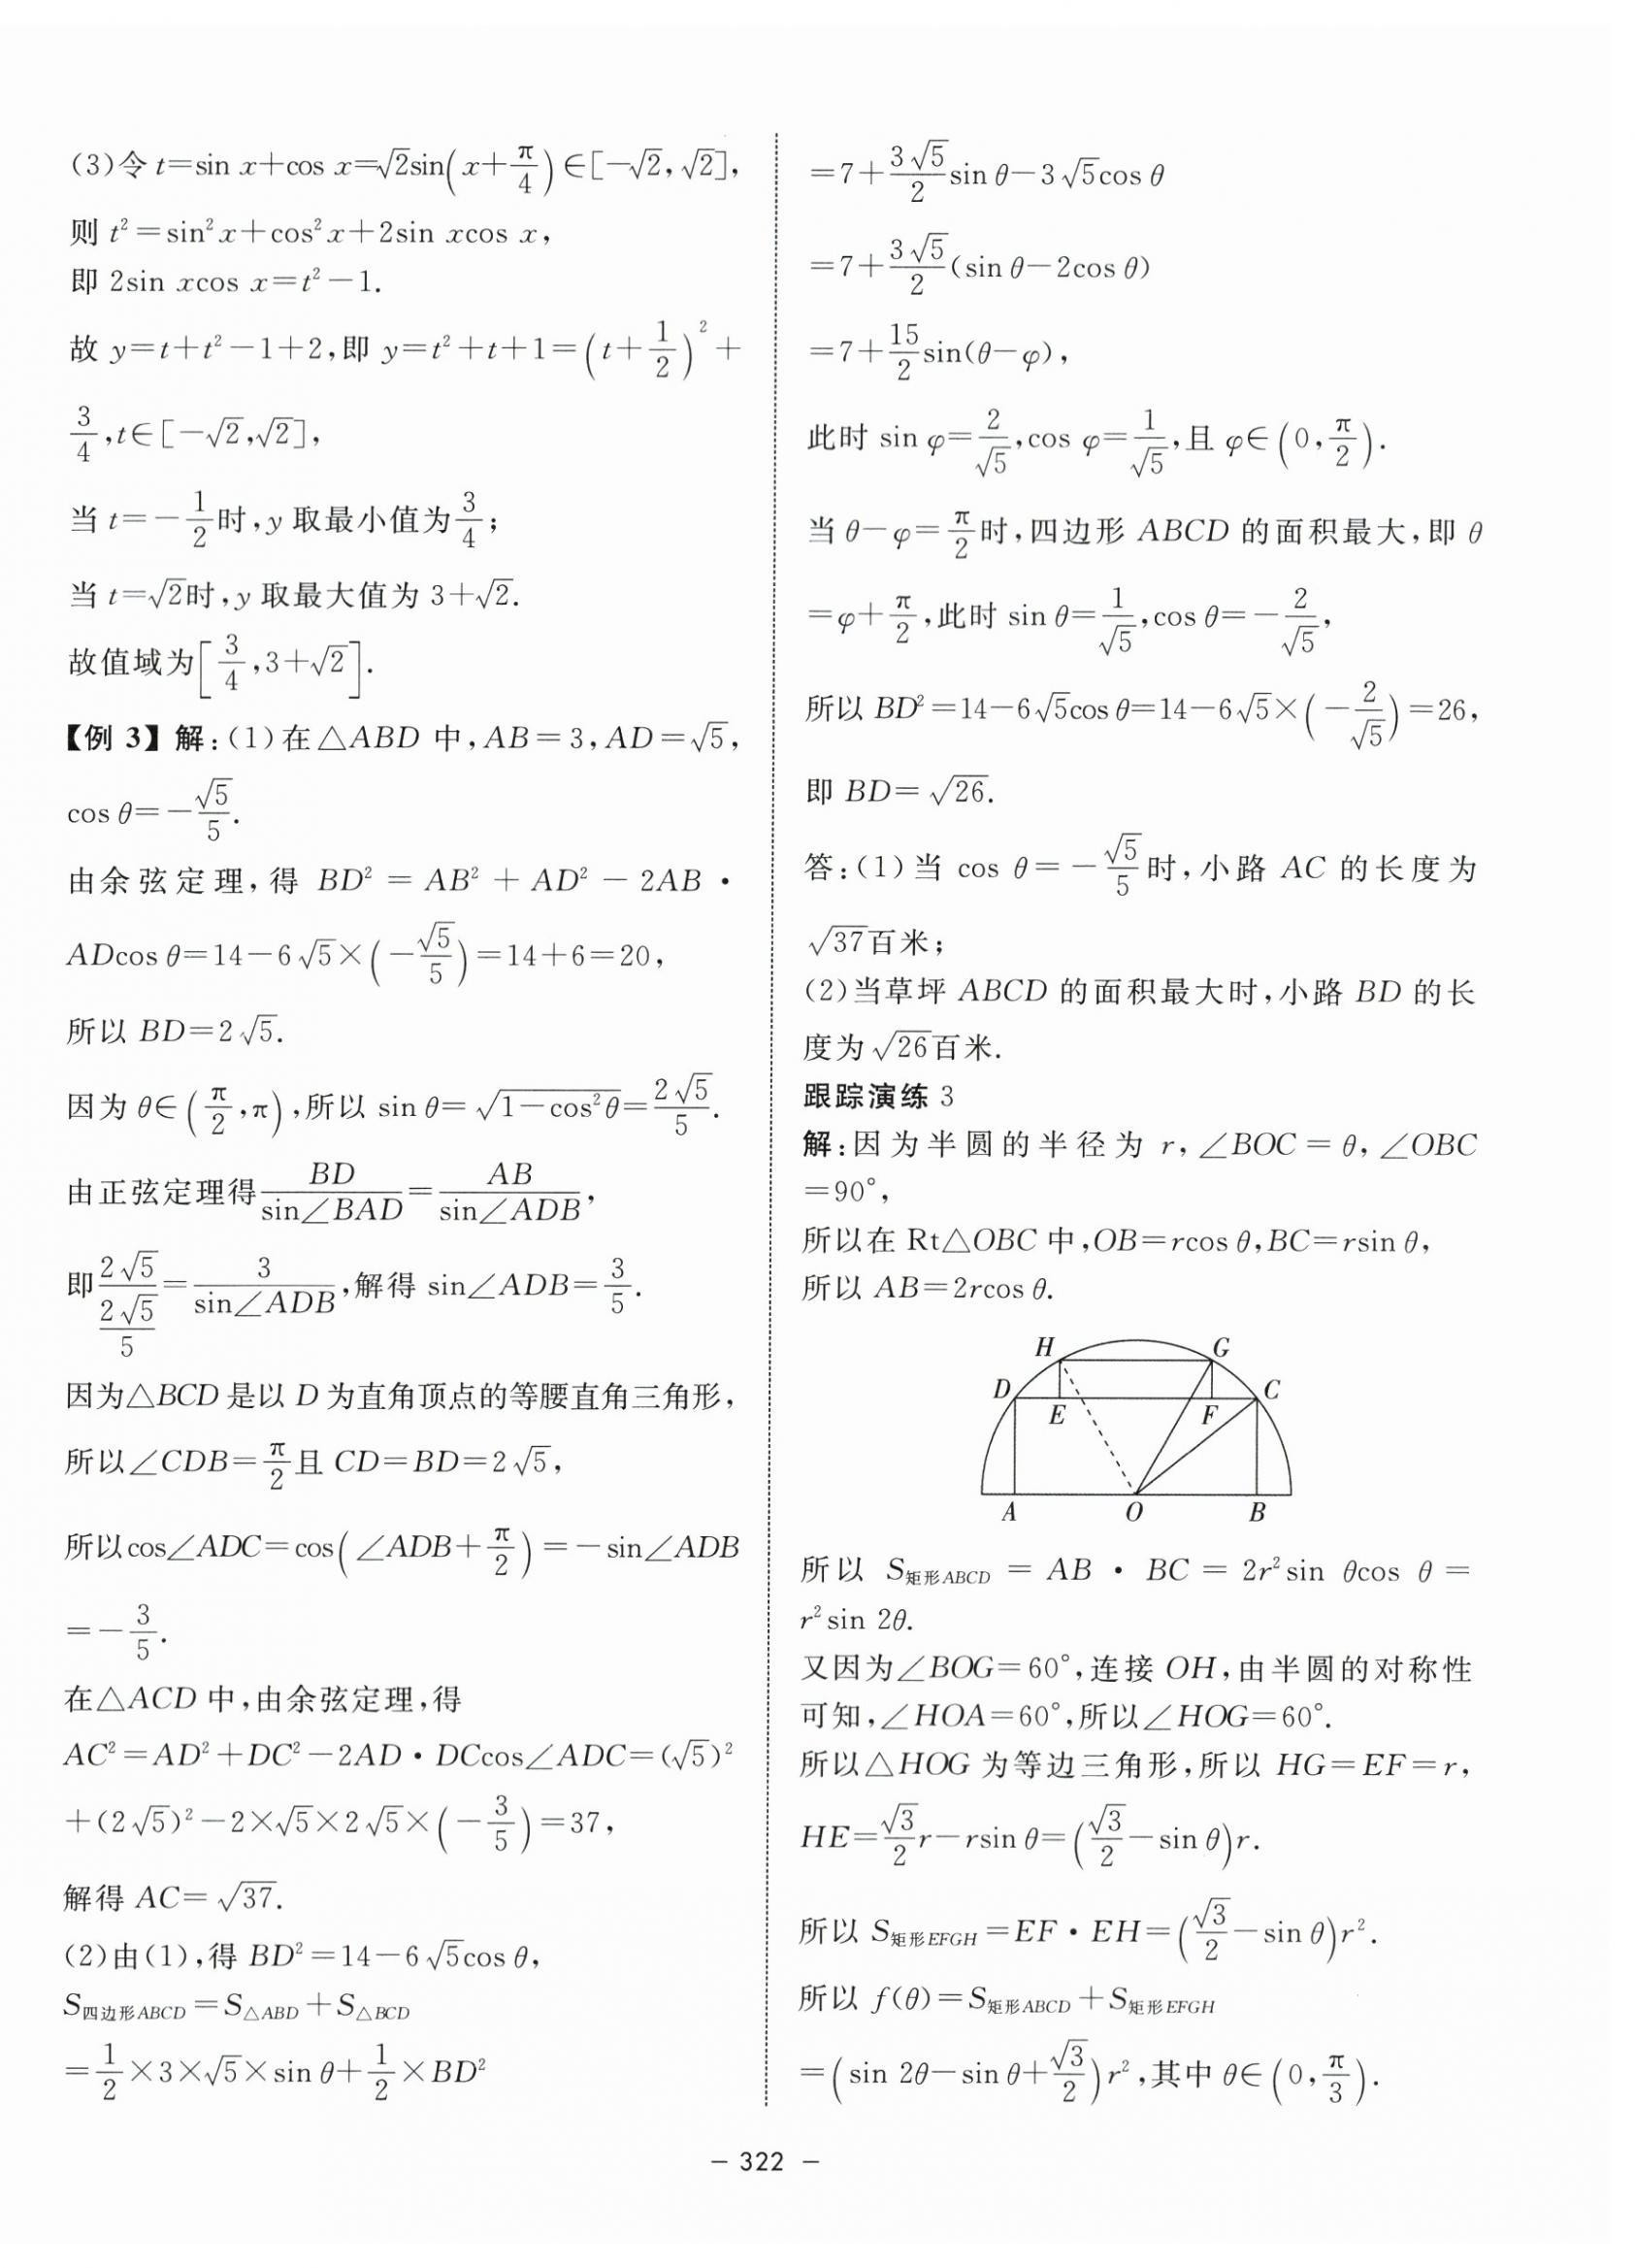 (3)令 t=sin x+cos x=√2sin(x+π/4)∈[-√2,√2],
则 t²=sin²x+cos²x+2sin xcos x,
即 2sin xcos x=t²-1.
故 y=t+t²-1+2,即 y=t²+t+1=(t+1/2)²+
3/4,t∈[-√2,√2],
当 t=-1/2时,y 取最小值为3/4;
当 t=√2时,y 取最大值为 3+√2.
故值域为[3/4,3+√2].
【例 3】解:(1)在△ABD 中,AB=3,AD=√5,
cos θ=-√5/5.
由余弦定理,得 BD²=AB²+AD²-2AB·
ADcos θ=14-6√5×(-√5/5)=14+6=20,
所以 BD=2√5.
因为 θ∈(π/2,π),所以 sin θ=√(1-cos²θ)=2√5/5.
由正弦定理得BD/sin∠BAD=AB/sin∠ADB,
即2√5/(2√5/5)=3/sin∠ADB,解得 sin∠ADB=3/5.
因为△BCD 是以 D 为直角顶点的等腰直角三角形,
所以∠CDB=π/2且 CD=BD=2√5,
所以cos∠ADC=cos(∠ADB+π/2)=-sin∠ADB
=-3/5.
在△ACD 中,由余弦定理,得
AC²=AD²+DC²-2AD·DCcos∠ADC=(√5)²
+(2√5)²-2×√5×2√5×(-3/5)=37,
解得 AC=√37.
(2)由(1),得 BD²=14-6√5cos θ,
S四边形ABCD=S△ABD+S△BCD
=1/2×3×√5×sin θ+1/2×BD²
=7+3√5/2 sin θ-3√5cos θ
=7+3√5/2(sin θ-2cos θ)
=7+15/2 sin(θ-φ),
此时 sin φ=2/√5,cos φ=1/√5,且 φ∈(0,π/2).
当 θ-φ=π/2时,四边形 ABCD 的面积最大,即 θ
=φ+π/2,此时 sin θ=1/√5,cos θ=-2/√5,
所以 BD²=14-6√5cos θ=14-6√5×(-2/√5)=26,
即 BD=√26.
答:(1)当 cos θ=-√5/5时,小路 AC 的长度为
√37百米;
(2)当草坪 ABCD 的面积最大时,小路 BD 的长
度为√26百米.
跟踪演练 3
解:因为半圆的半径为 r,∠BOC=θ,∠OBC
=90°,
所以在 Rt△OBC 中,OB=rcos θ,BC=rsin θ,
所以 AB=2rcos θ.
H G
D C
E F
A O B
所以 S矩形ABCD=AB·BC=2r²sin θcos θ=
r²sin 2θ.
又因为∠BOG=60°,连接 OH,由半圆的对称性
可知,∠HOA=60°,所以∠HOG=60°.
所以△HOG 为等边三角形,所以 HG=EF=r,
HE=√3/2 r-rsin θ=(√3/2-sin θ)r.
所以 S矩形EFGH=EF·EH=(√3/2-sin θ)r².
所以 f(θ)=S矩形ABCD+S矩形EFGH
=(sin 2θ-sin θ+√3/2)r²,其中 θ∈(0,π/3).
- 322 -